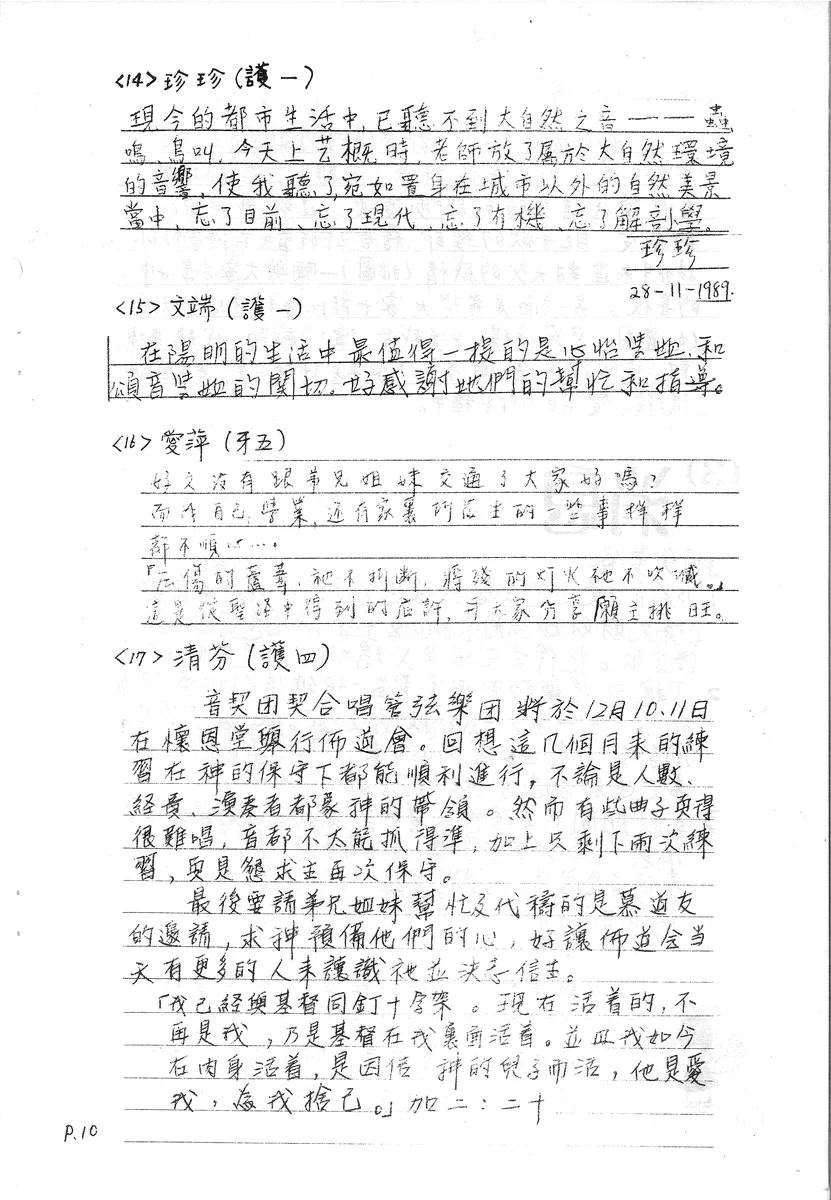 <14> 珍珍(護一)
現今的都市生活中,已聽不到大自然之音——蟲
鳴、鳥叫,今天上艺概時,老師放了屬於大自然環境
的音響,使我聽了,宛如置身在城市以外的自然美景
當中,忘了目前、忘了現代、忘了有機、忘了解剖學。
珍珍
28-11-1989.
<15> 文端(護一)
在陽明的生活中最值得一提的是心怡學姐、和
頌音學姐的関切。好感謝她們的幫忙和指導。
<16> 愛萍(牙五)
好久沒有跟弟兄姐妹交通了大家好嗎?
而我自己學業,還有家裏所發生的一些事樣樣
都不順心…。
『壓傷的蘆葦,祂不折斷,將殘的灯火祂不吹滅。』
這是從聖經中得到的應許,与大家分享願主挑旺。
<17> 清芬(護四)
音契团契合唱管弦樂団將於12月10.11日
在懷恩堂舉行佈道會。回想這几個月來的練
習在神的保守下都能順利進行,不論是人數、
経費、演奏者都蒙神的帶領。然而有些曲子頁得
很難唱,音都不太能抓得準,加上只剩下兩次練
習,更是懇求主再次保守。
最後要請弟兄姐妹幫忙及代禱的是慕道友
的邀請,求神預備他們的心,好讓佈道会当
天有更多的人来讓識祂並決志信主。
「我已經與基督同釘十字架。現在活着的,不
再是我,乃是基督在我裏面活着。並且我如今
在肉身活着,是因信 神的兒子而活,他是愛
我,為我捨己。」加二:二十
P.10